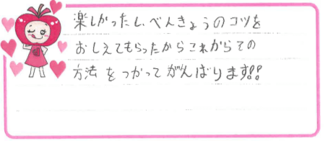 楽しかったしべんきょうのコツを
おしえてもらったからこれからこの
方法をつかってがんばります!!